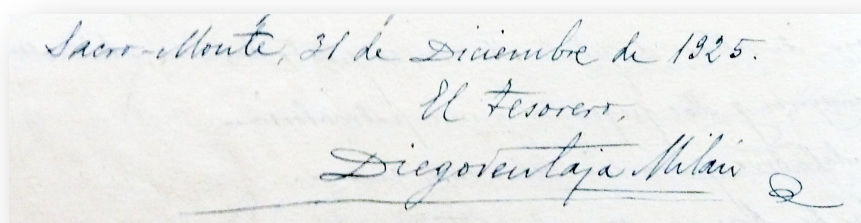 Sacro-Monte, 31 de Diciembre de 1925.
El Tesorero,
Diego Ventaja Milán